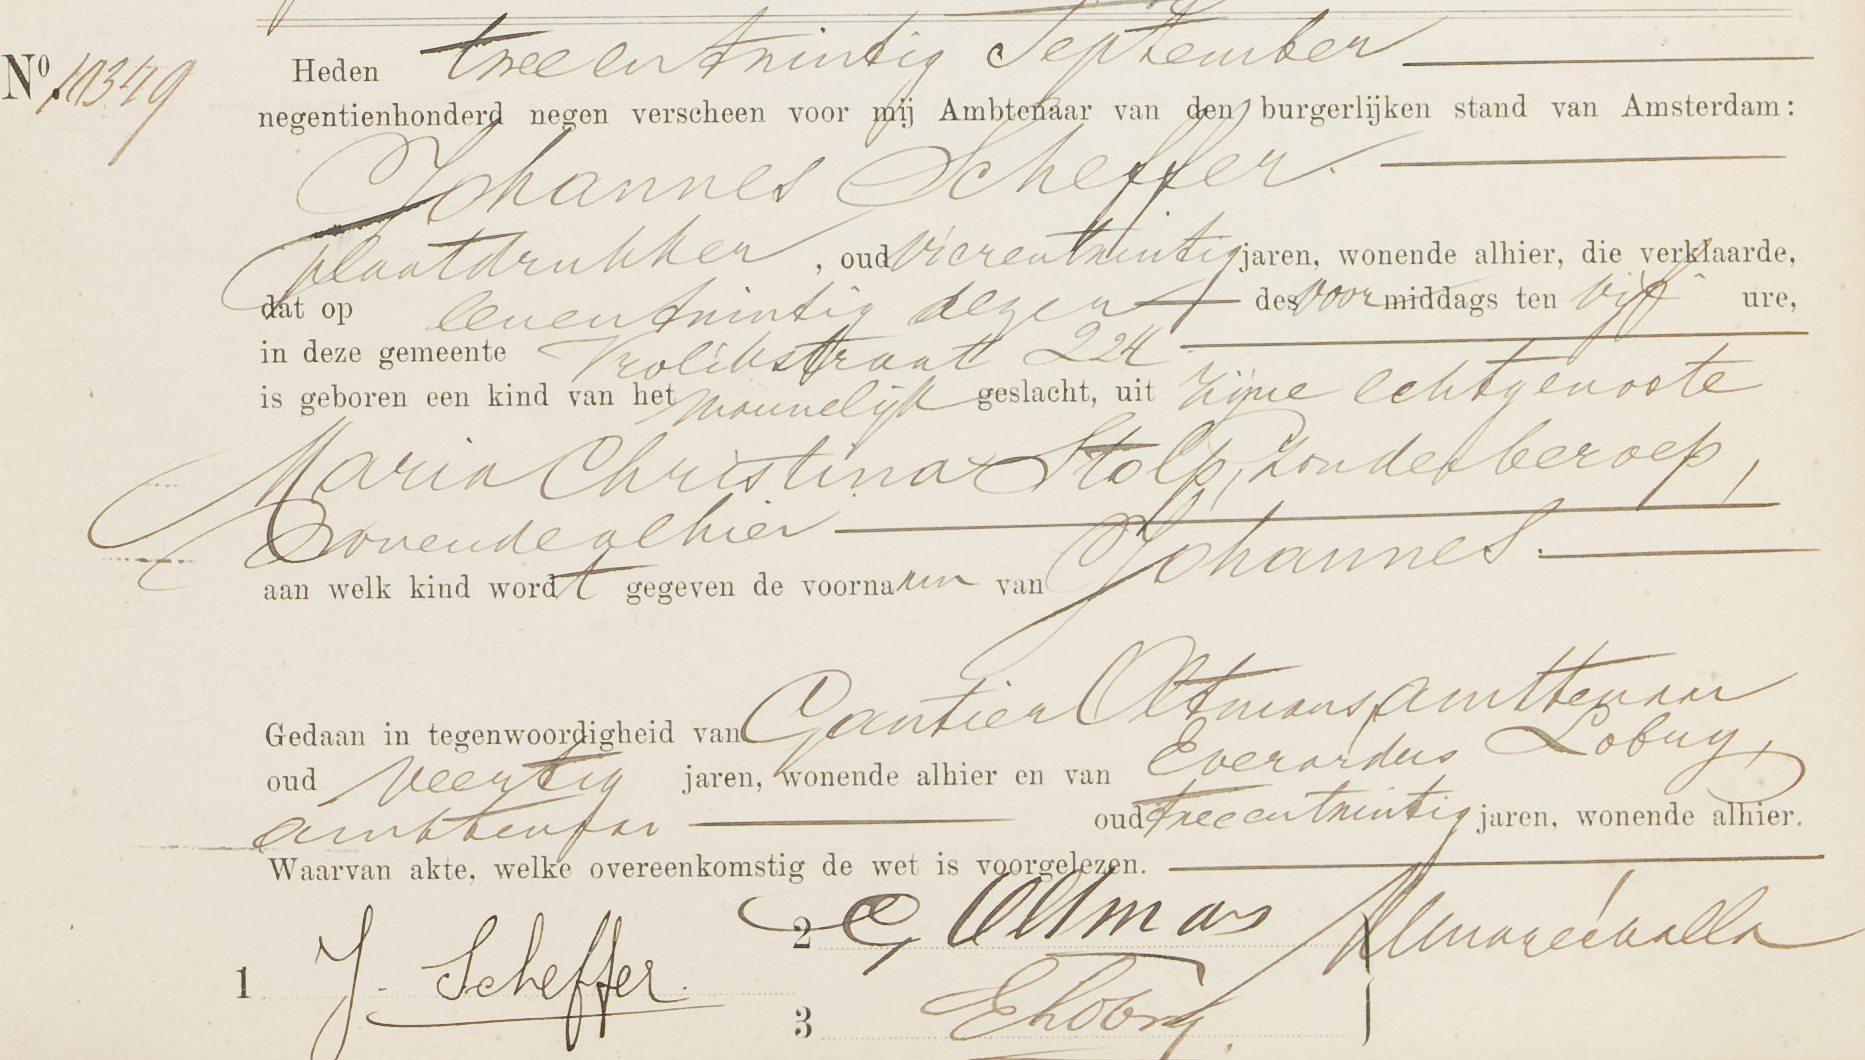 Nº. 10349
Heden tweeentwintig September
negentienhonderd negen verscheen voor mij Ambtenaar van den burgerlijken stand van Amsterdam:
Johannes Scheffer.
plaatdrukker, oud vierentwintig jaren, wonende alhier, die verklaarde,
dat op eenentwintig dezer des voormiddags ten vijf ure,
in deze gemeente Vrolikstraat 224
is geboren een kind van het mannelijk geslacht, uit zijne echtgenoote
Maria Christina Stolp, zonder beroep,
wonende alhier
aan welk kind wordt gegeven de voornaam van Johannes.
Gedaan in tegenwoordigheid van Gautier Oltmans, ambtenaar
oud veertig jaren, wonende alhier en van Everardus Lobry,
ambtenaar oud tweeentwintig jaren, wonende alhier.
Waarvan akte, welke overeenkomstig de wet is voorgelezen.
2 G Oltmans
1 J. Scheffer.
3 E Lobry.